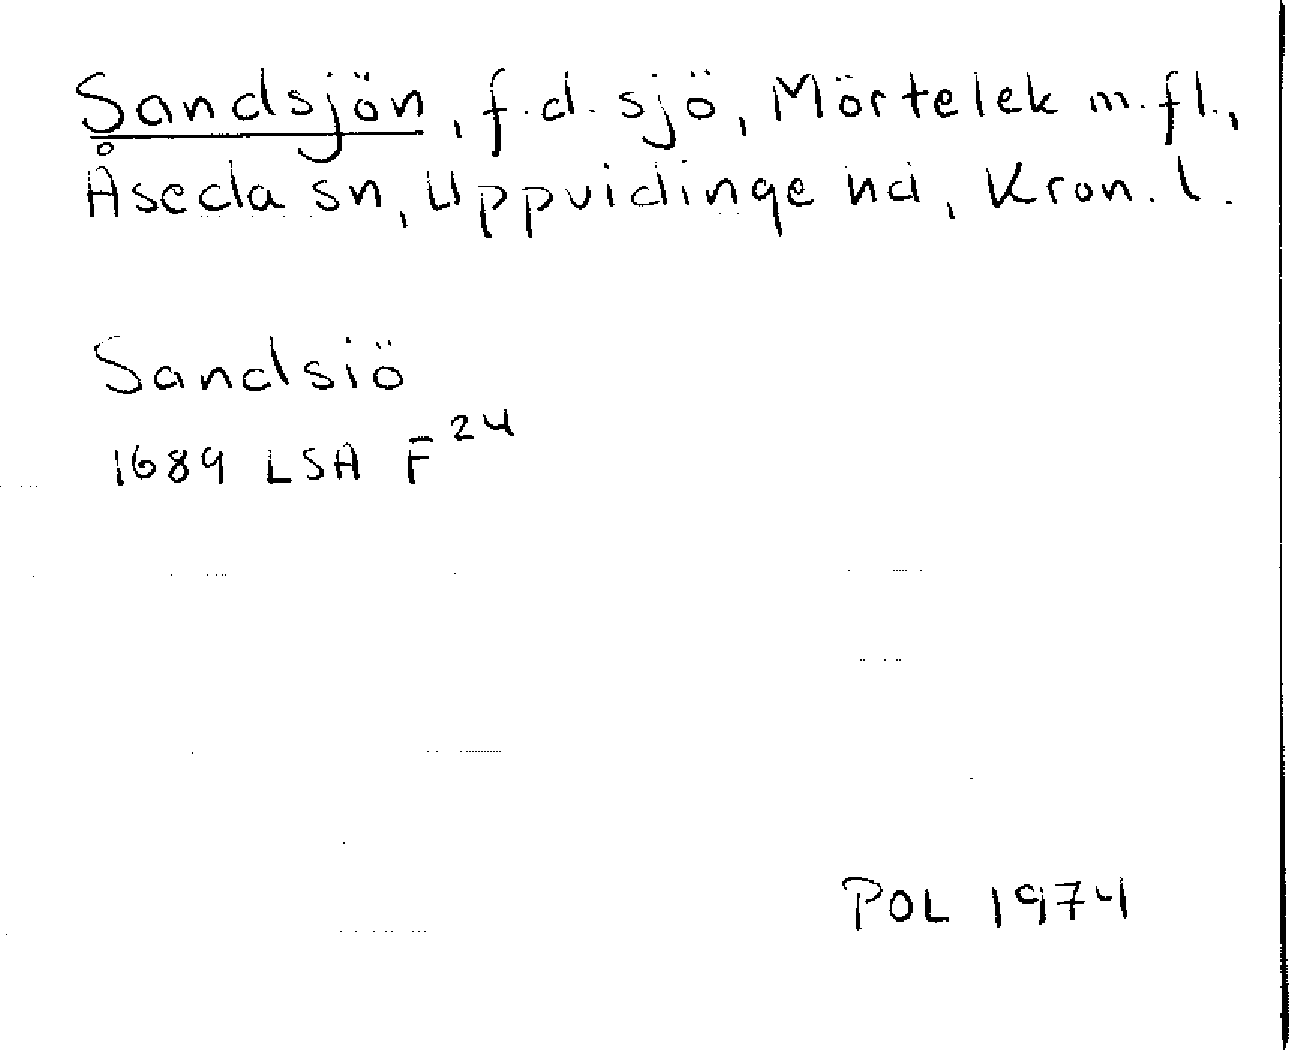 Sandsjön, f.d. sjö, Mörtelek m.fl.,
Åseda sn, Uppvidinge hd, Kron. l.
Sandsiö
1689 LSA F 24
POL 1974